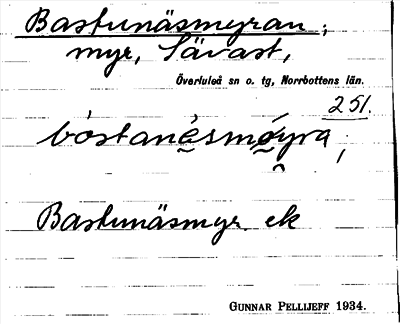 Bastunäsmyran;
myr, Sävast,
Överluleå sn o. tg, Norrbottens län.
251.
bòstanè̬smó̬yra;
Bastunäsmyr ek
GUNNAR PELLIJEFF 1934.